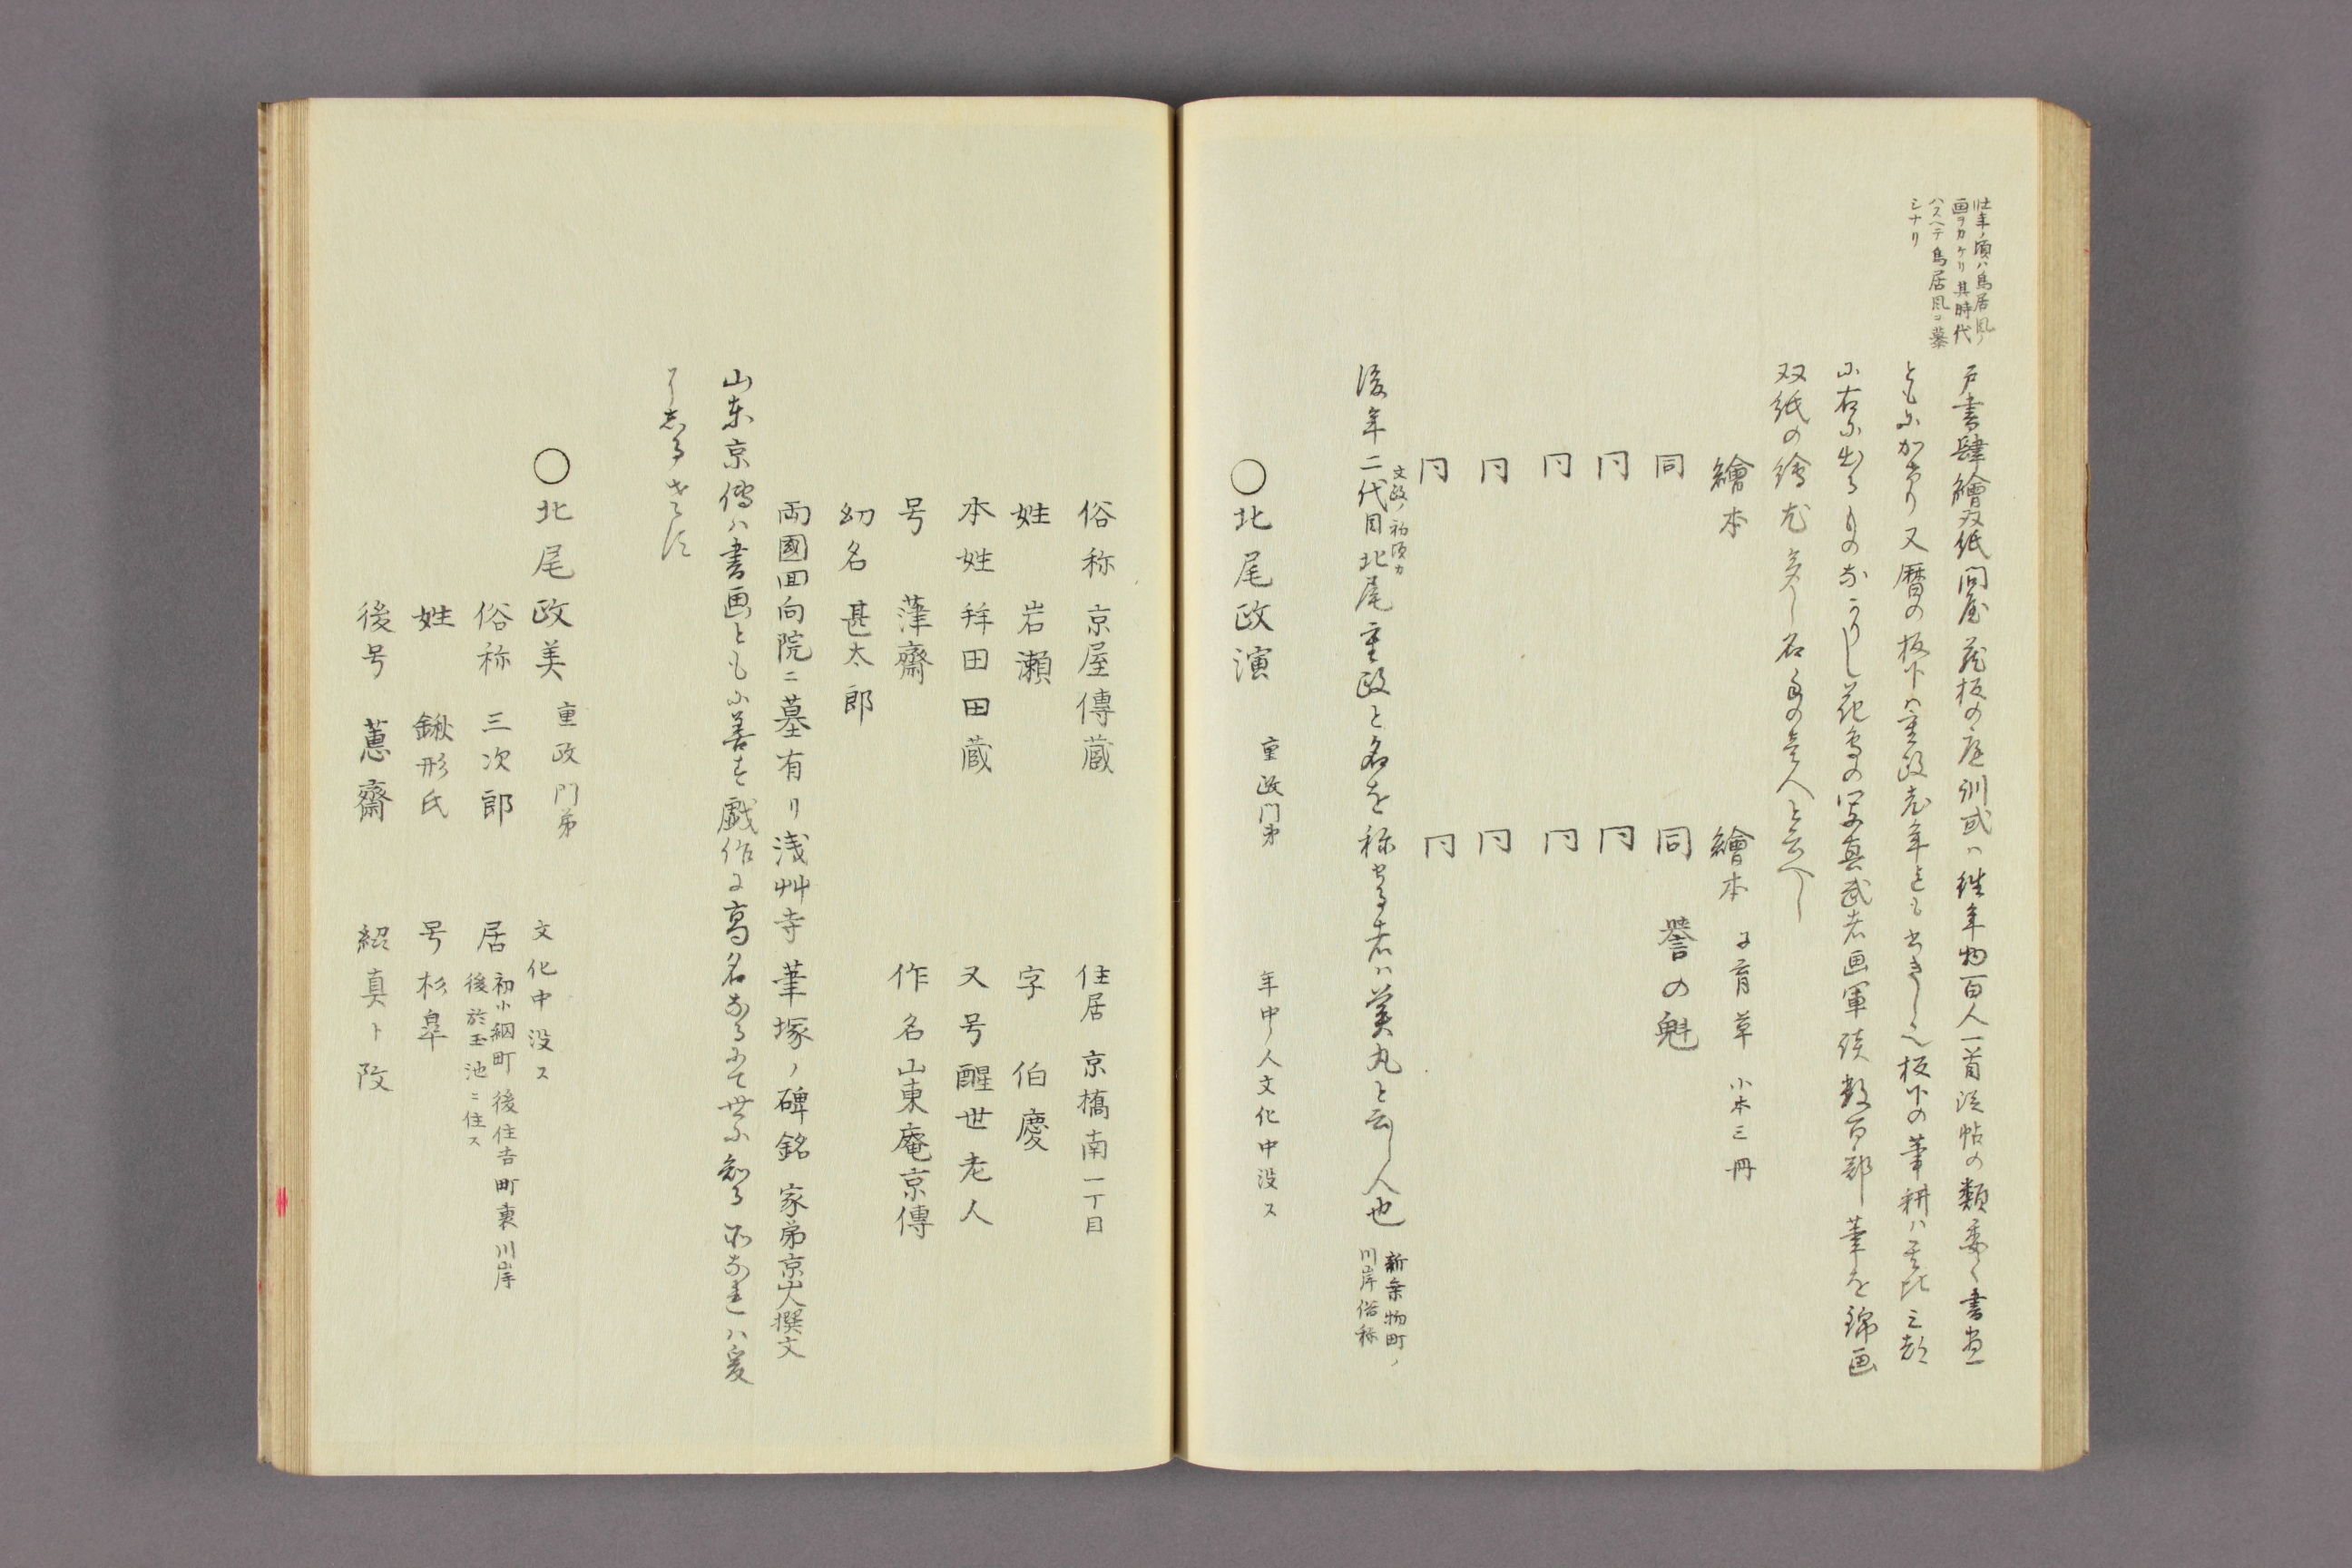 壮年ノ頃ハ鳥居風ノ
画ヲカケリ其時代
ハスヘテ鳥居風ヲ慕
シナリ
戸書肆繪双紙問屋蔵板の庭訓或ハ往年物百人一首法帖の類委く書画
ともにかけり又暦の板下ハ重政老年迄も書きし也板下の筆耕ハ
に右に出るものなかりし花鳥の写真武者画軍談数百部筆を錦画
双紙の繪尤多し名誉の画人と云へし
繪本
繪本
子育草 小本三冊
同
同
誉の魁
同
同
同
同
同
同
同
同
文政ノ初頃カ
後年二代目北尾重政と名を称せる者ハ美丸と云し人也 新乗物町ノ
川岸俗称
○北尾政演 重政門弟 年中ノ人文化中没ス
俗称 京屋傳蔵 住居 京橋南一丁目
姓 岩瀬 字 伯慶
本姓 拜田田蔵 又号醒世老人
号 葎齋 作名山東庵京傳
幼名 甚太郎
両國回向院ニ墓有リ浅艸寺筆塚ノ碑銘 家弟京山人撰文
山東京傳ハ書画ともに善す戯作に高名なるにて世に知る所なれハ爰
にしるさす
○北尾政美 重政門弟 文化中没ス
俗称 三次郎 居 初小網町 後住吉町裏川岸
後於玉池ニ住ス
姓 鍬形氏 号 杉皐
後号 蕙齋 紹真ト改